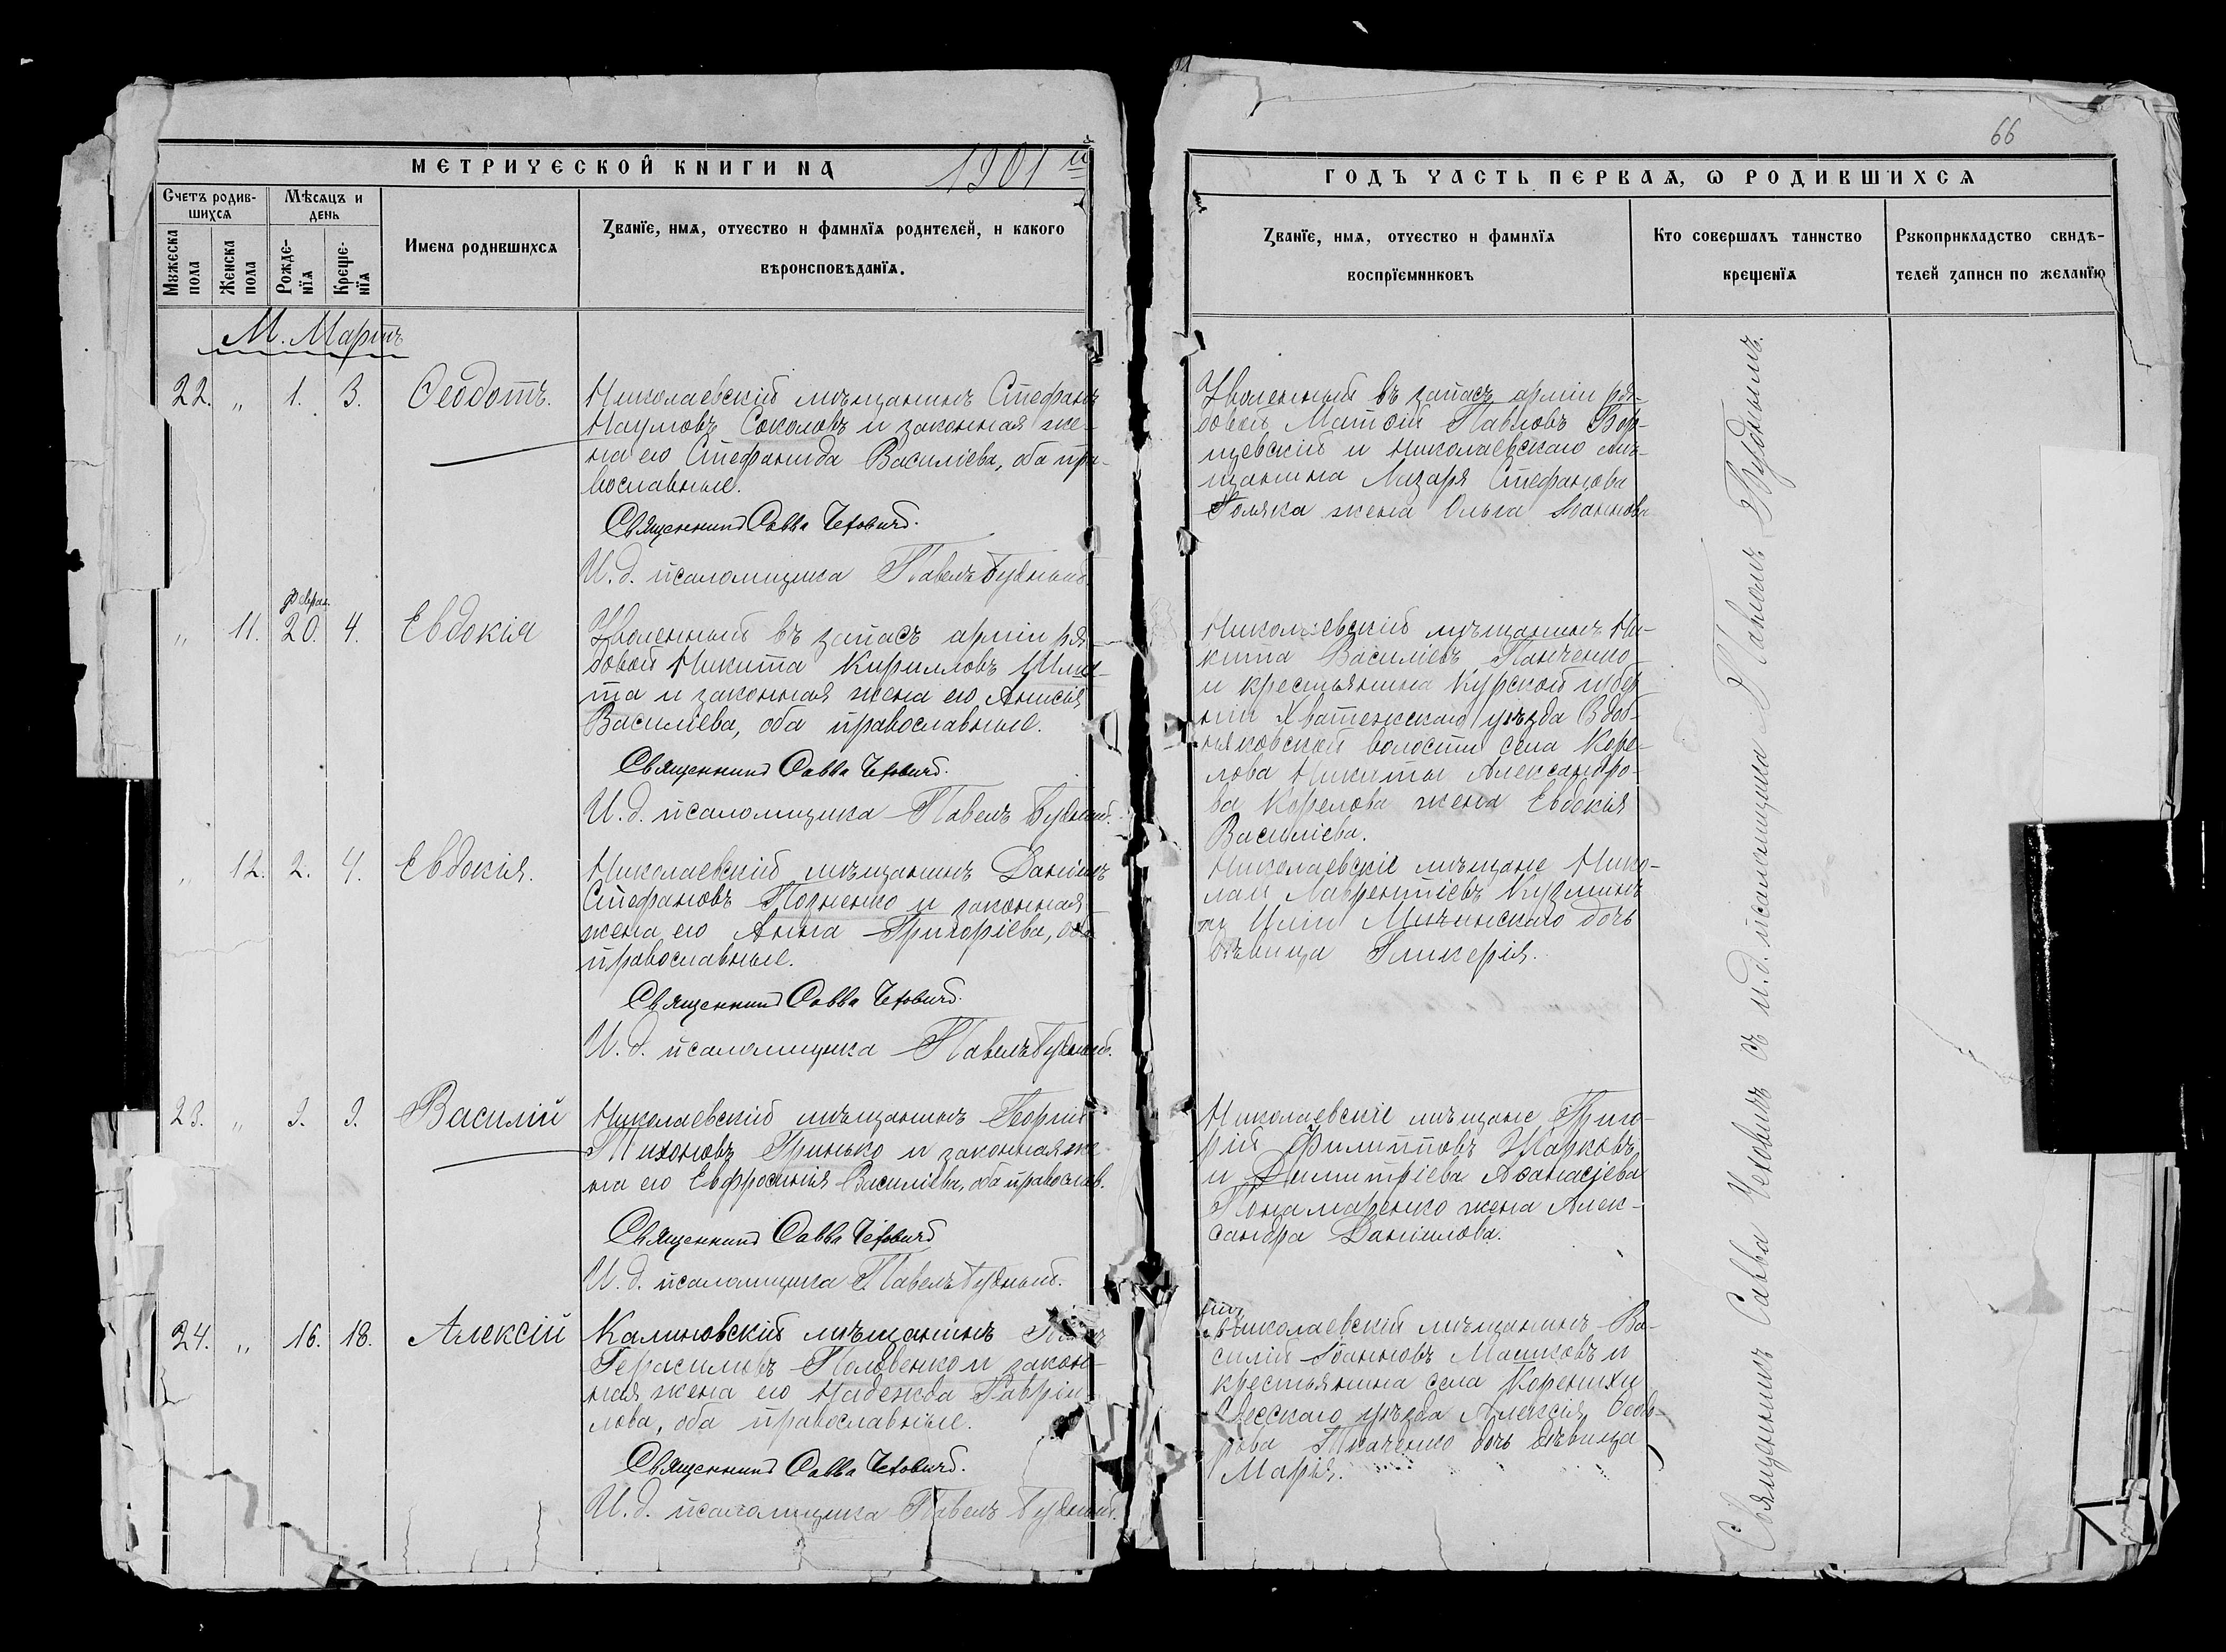 66
МЕТРИЧЕСКОЙ КНИГИ НА 1901й
ГОДЪ ЧАСТЬ ПЕРВАЯ, Ѡ РОДИВШИХСЯ
Счетъ родив-
шихся
Мѣсяцъ и
день
Мужеска
пола
Женска
пола
Рожде-
нїя
Креще-
нїя
Имена родившихся
Званїе, имя, отчество и фамилїя родителей, и какого
вѣроисповѣданїя.
Званїе, имя, отчество и фамилїя
воспрїемниковъ
Кто совершалъ таинство
крещенїя
Рукоприкладство свидѣ-
телей записи по желанїю
М. Мартъ
22. „ 1. 3. Ѳеодотъ.
Николаевскій мѣщанинъ Стефанъ
Наумовъ Соколовъ и законная же-
на его Стефанида Василіева, оба пра-
вославные.
Священникъ Савва Чеховичъ.
И. д. псаломщика Павелъ Будный.
Уволенный въ запасъ арміи ря-
довой Матѳій Павловъ Бор-
щевскій и Николаевскаго мѣ-
щанина Лазаря Стефанова
Поляка жена Ольга Іоаннова
„ 11. Феврал. 20. 4. Евдокія
Уволенный въ запасъ арміи ря-
довой Никита Кирилловъ
и законная жена его Анисія
Василіева, оба православные.
Священникъ Савва Чеховичъ.
И. д. псаломщика Павелъ Будный.
Николаевскій мѣщанинъ Ни-
кита Василіевъ Панченко
и крестьянина Курской губер-
ніи уѣзда
волости села Коре-
лова Никиты Александро-
ва Корелова жена Евдокія
Василіева.
„ 12. 2. 4. Евдокія.
Николаевскій мѣщанинъ Даніилъ
Стефановъ и законная
жена его Анна Григоріева, оба
православные.
Священникъ Савва Чеховичъ.
И. д. псаломщика Павелъ Будный.
Николаевскіе мѣщане Нико-
лай Лаврентіевъ Кузминъ
Иліи дочь
дѣвица Гликерія.
23. „ 9. 9. Василій
Николаевскій мѣщанинъ Георгій
Тихоновъ Гринько и законная же-
на его Евфросинія Василіева, оба православ.
Священникъ Савва Чеховичъ
И. д. псаломщика Павелъ Будный.
Николаевскіе мѣщане Григо-
рій Филипповъ Жарковъ
и Димитріева Аѳанасіева
Понамаренко жена Алек-
сандра Даніилова.
24. „ 16. 18. Алексій
Калиновскій мѣщанинъ
Герасимовъ Половенко и закон-
ная жена его Надежда Гавріи-
лова, оба православные.
Священникъ Савва Чеховичъ.
И. д. псаломщика Павелъ Будный.
Николаевскій мѣщанинъ Ва-
силій Іоанновъ Машковъ и
крестьянина села Коренихи
Одесскаго уѣзда Алексія Ѳеодо-
рова Ткаченко дочь дѣвица
Марія.
Священникъ Савва Чеховичъ съ и. д. псаломщика Павломъ Буднымъ.